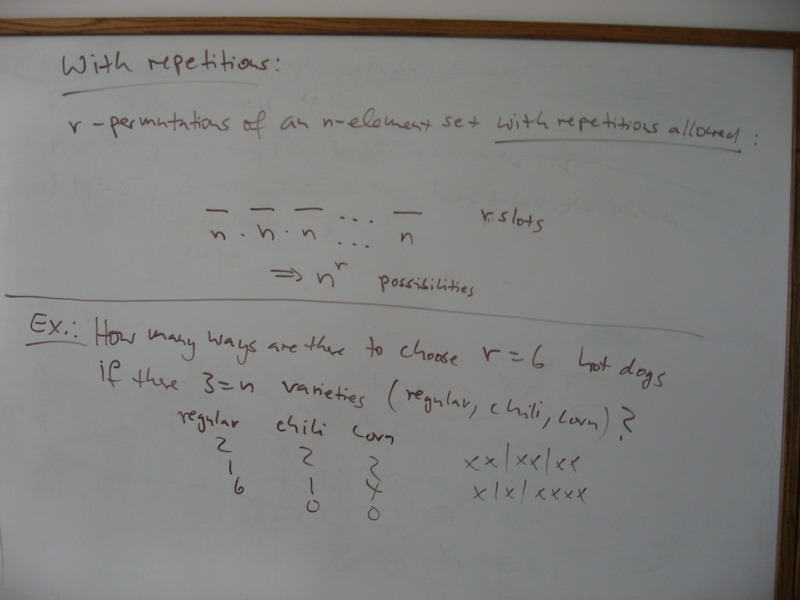 With repetitions:
r-permutations of an n-element set with repetitions allowed:
_ _ _ ... _ r slots
n · n · n ... n
⇒ n^r possibilities
Ex.: How many ways are there to choose r = 6 hot dogs
if there 3 = n varieties (regular, chili, corn)?
regular chili corn
2 2 2 xx|xx|xx
1 1 4 x|x|xxxx
6 0 0